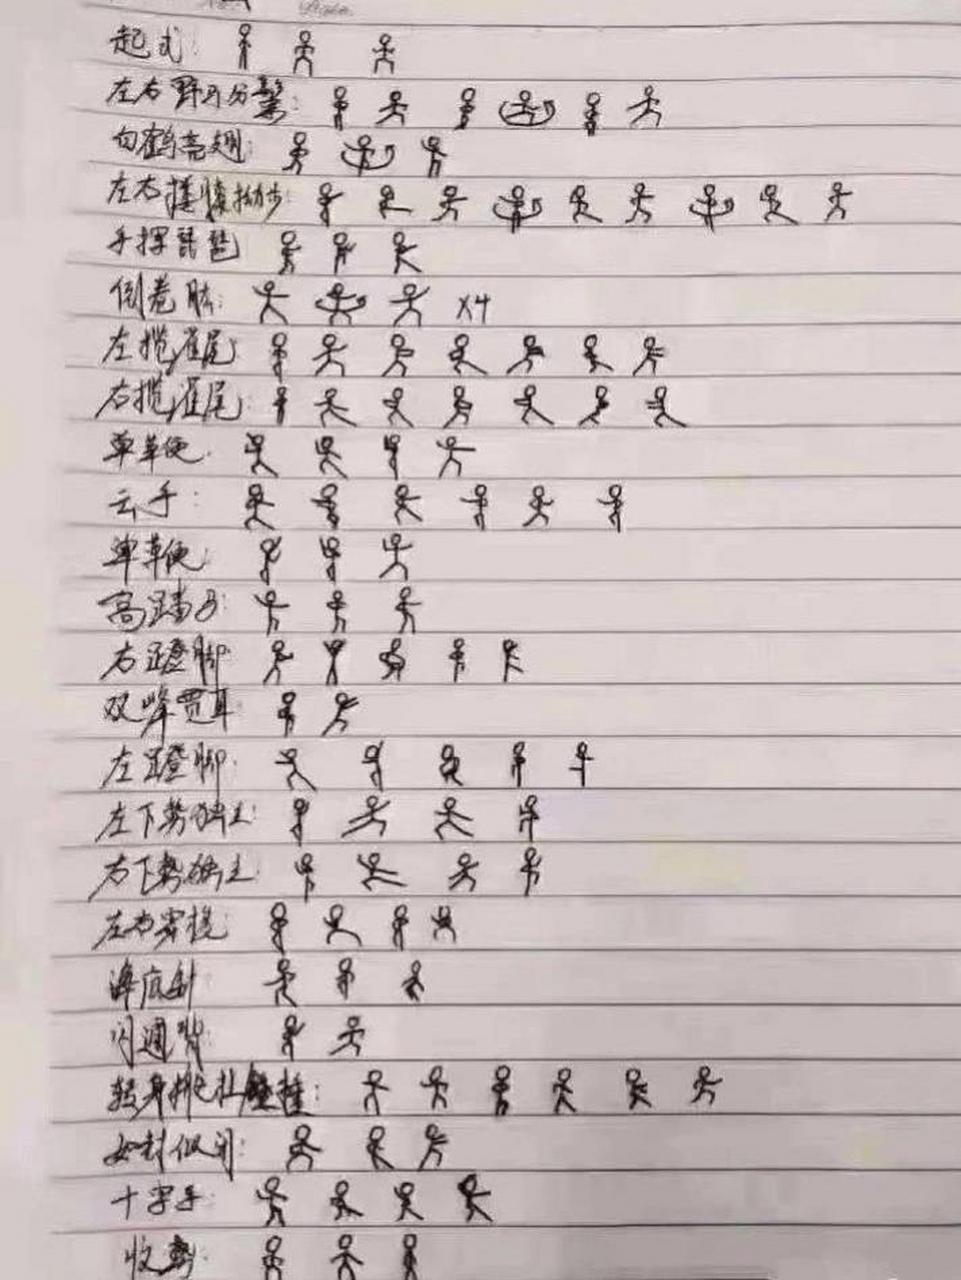 起式:
左右野马分鬃:
白鹤亮翅:
左右搂膝拗步:
手挥琵琶
倒卷肱: X4
左揽雀尾:
右揽雀尾:
单革便.
云手:
单革便:
高踏马:
右蹬脚:
双峰贯耳
左蹬脚:
左下势独立:
右下势独立:
左右穿梭:
海底针
闪通背:
转身搬拦捶:
如封似闭:
十字手:
收势: